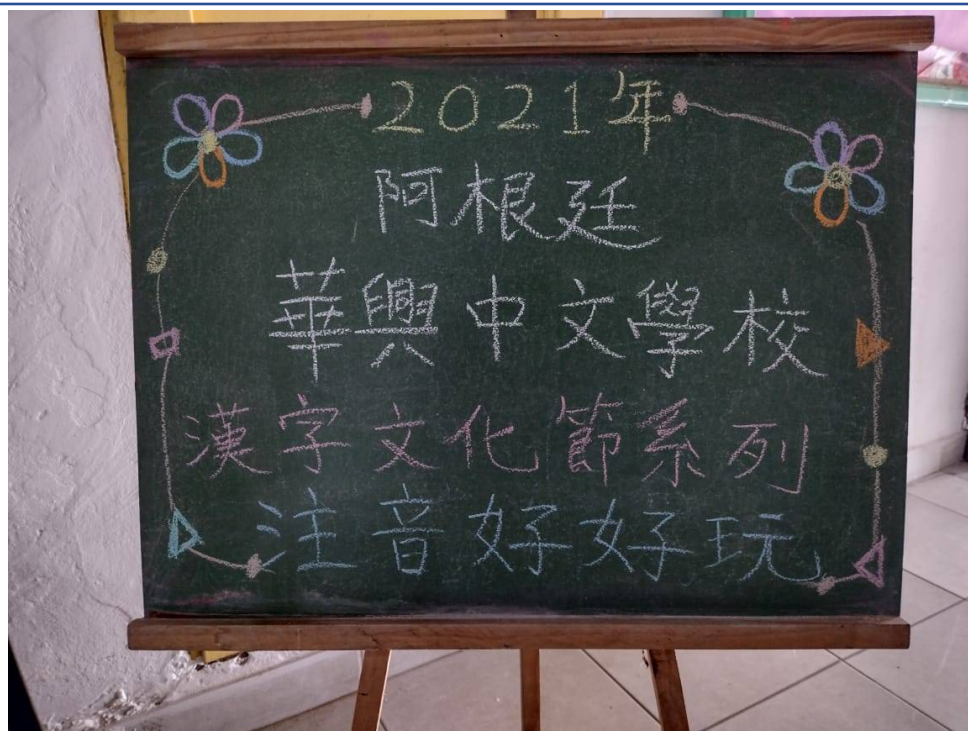 2021年
阿根廷
華興中文學校
漢字文化節系列
注音好好玩